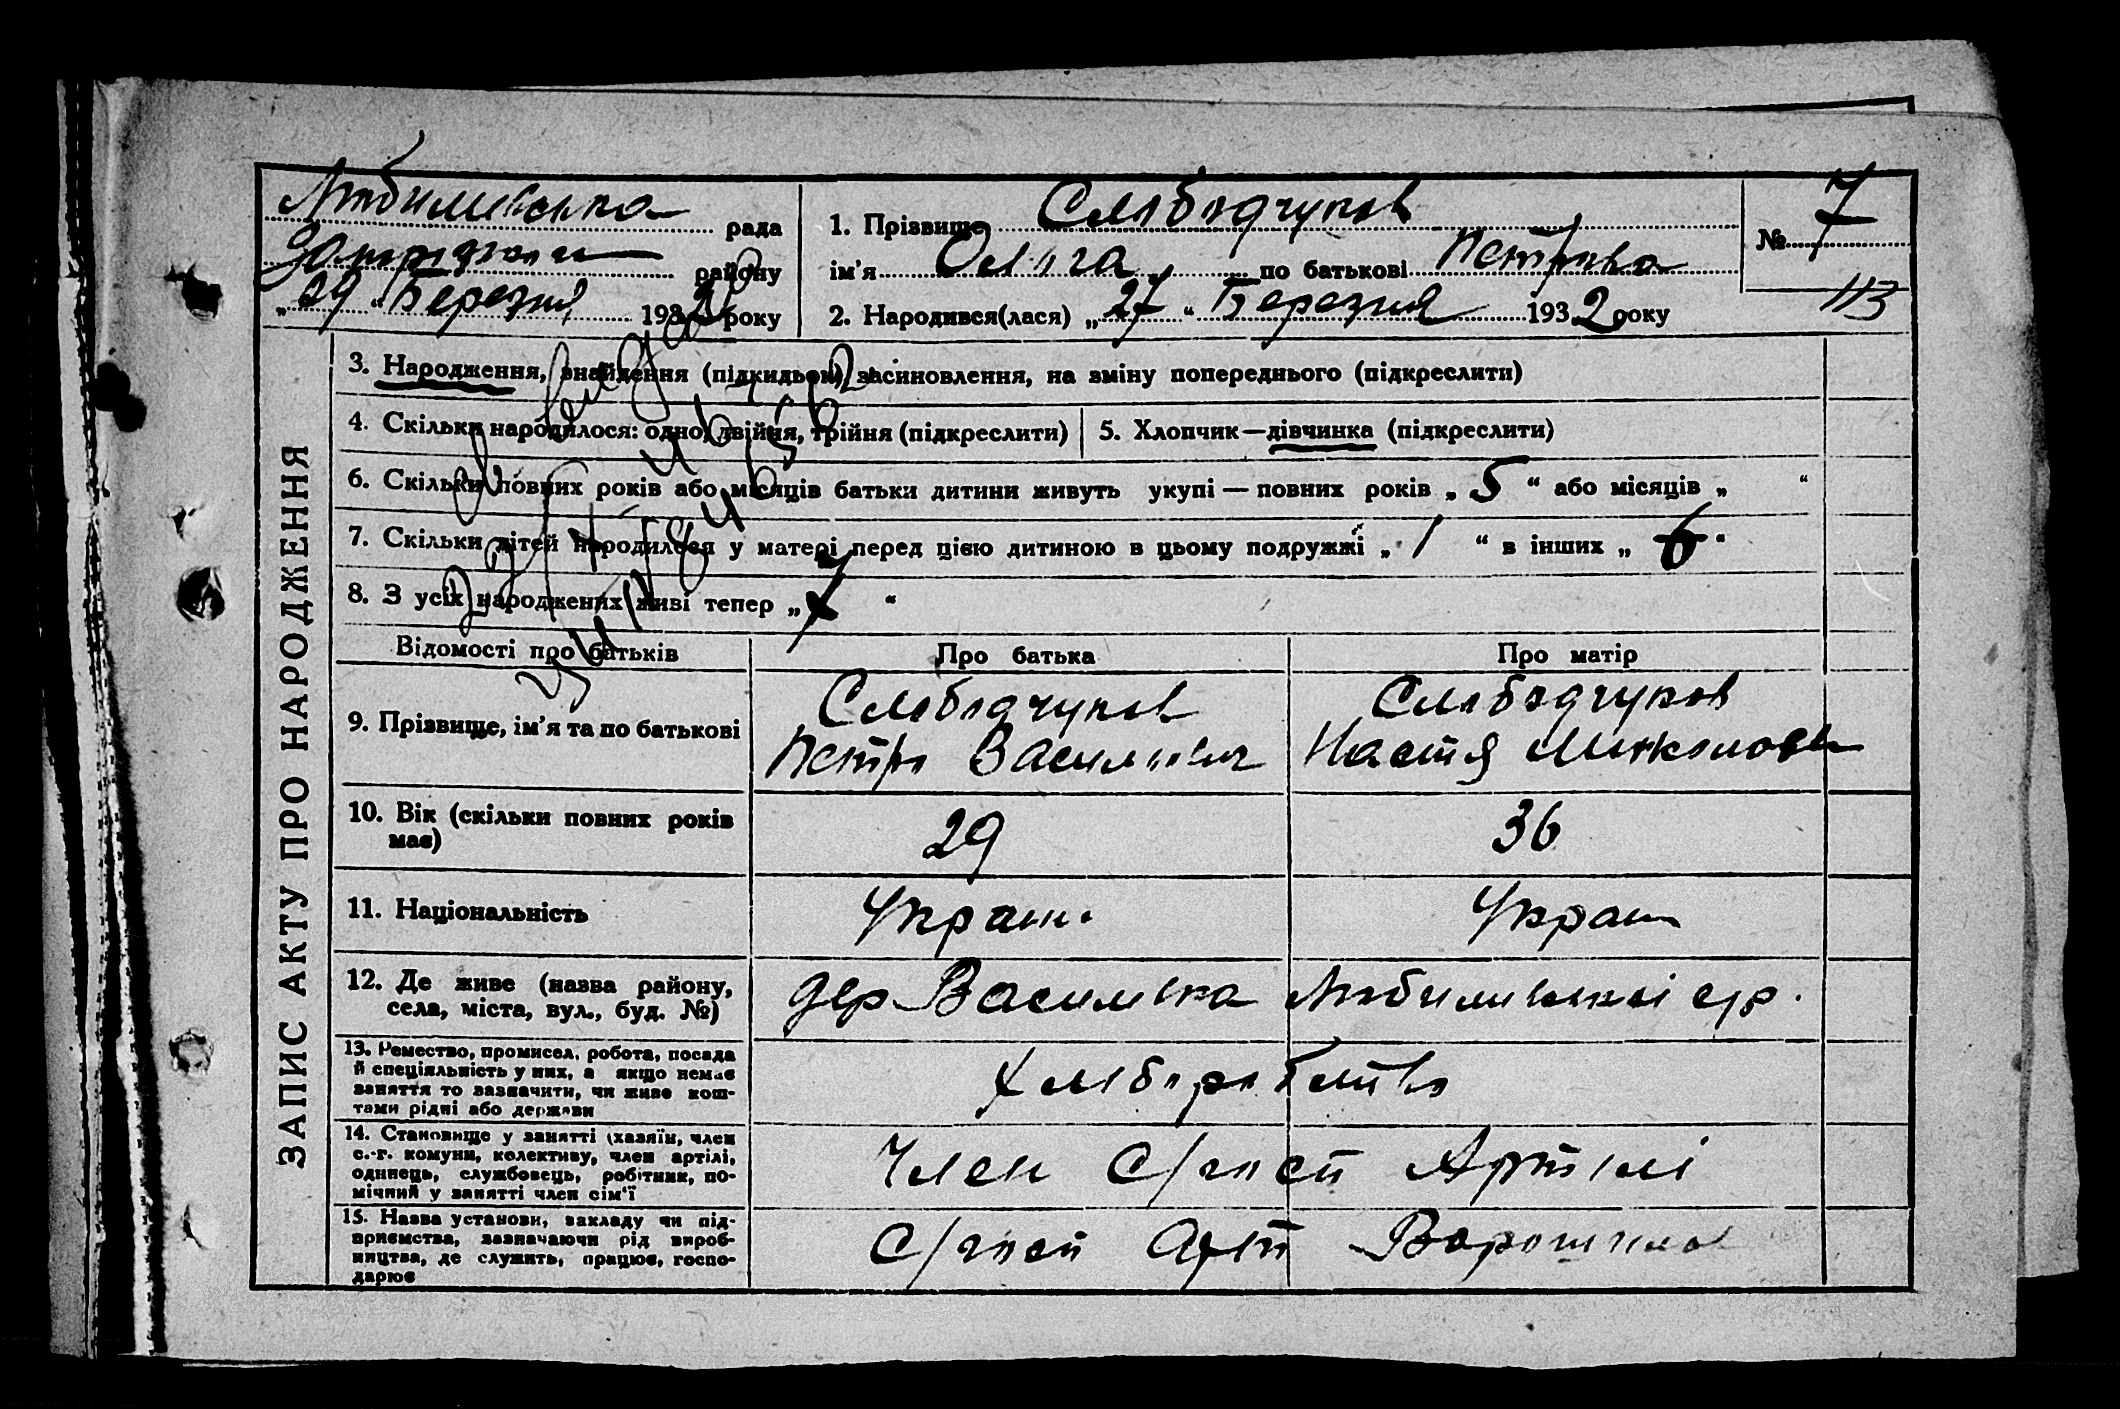 Любимівська рада
району
„29“ Березня 1932 року
1. Прізвище Слободчуков
ім'я Ольга по батькові Петрівна
2. Народився(лася) „27“ Березня 1932 року
№ 7
113
ЗАПИС АКТУ ПРО НАРОДЖЕННЯ
3. Народження, знайдення (підкидьок) засиновлення, на зміну попереднього (підкреслити)
4. Скільки народилося: одно, двійня, трійня (підкреслити)
5. Хлопчик—дівчинка (підкреслити)
6. Скільки повних років або місяців батьки дитини живуть укупі — повних років „5“ або місяців „ “
7. Скільки дітей народилося у матері перед цією дитиною в цьому подружжі „1“ в інших „6“
8. З усіх народжених живі тепер „ “
Відомості про батьків
Про батька
Про матір
9. Прізвище, ім'я та по батькові
Слободчуков
Петро Васильович
Слободчуков
Настя
10. Вік (скільки повних років
має)
29
36
11. Національність
Украин.
Украин
12. Де живе (назва району,
села, міста, вул., буд. №)
дер Василівка Любимівської с/р.
13. Ремество, промисел, робота, посада
й спеціяльність у них, а якщо немає
заняття то зазначити, чи живе кош-
тами рідні або держави
Хліборобство
14. Становище у занятті (хазяїн, член
с.-г. комуни, колективу, член артілі,
одинець, службовець, робітник, по-
мічний у занятті член сім'ї
Член С/госп Артілі
15. Назва установи, закладу чи під-
приємства, зазначаючи рід вироб-
ництва, де служить, працює, госпо-
дарює
С/госп Арт Ворошилов